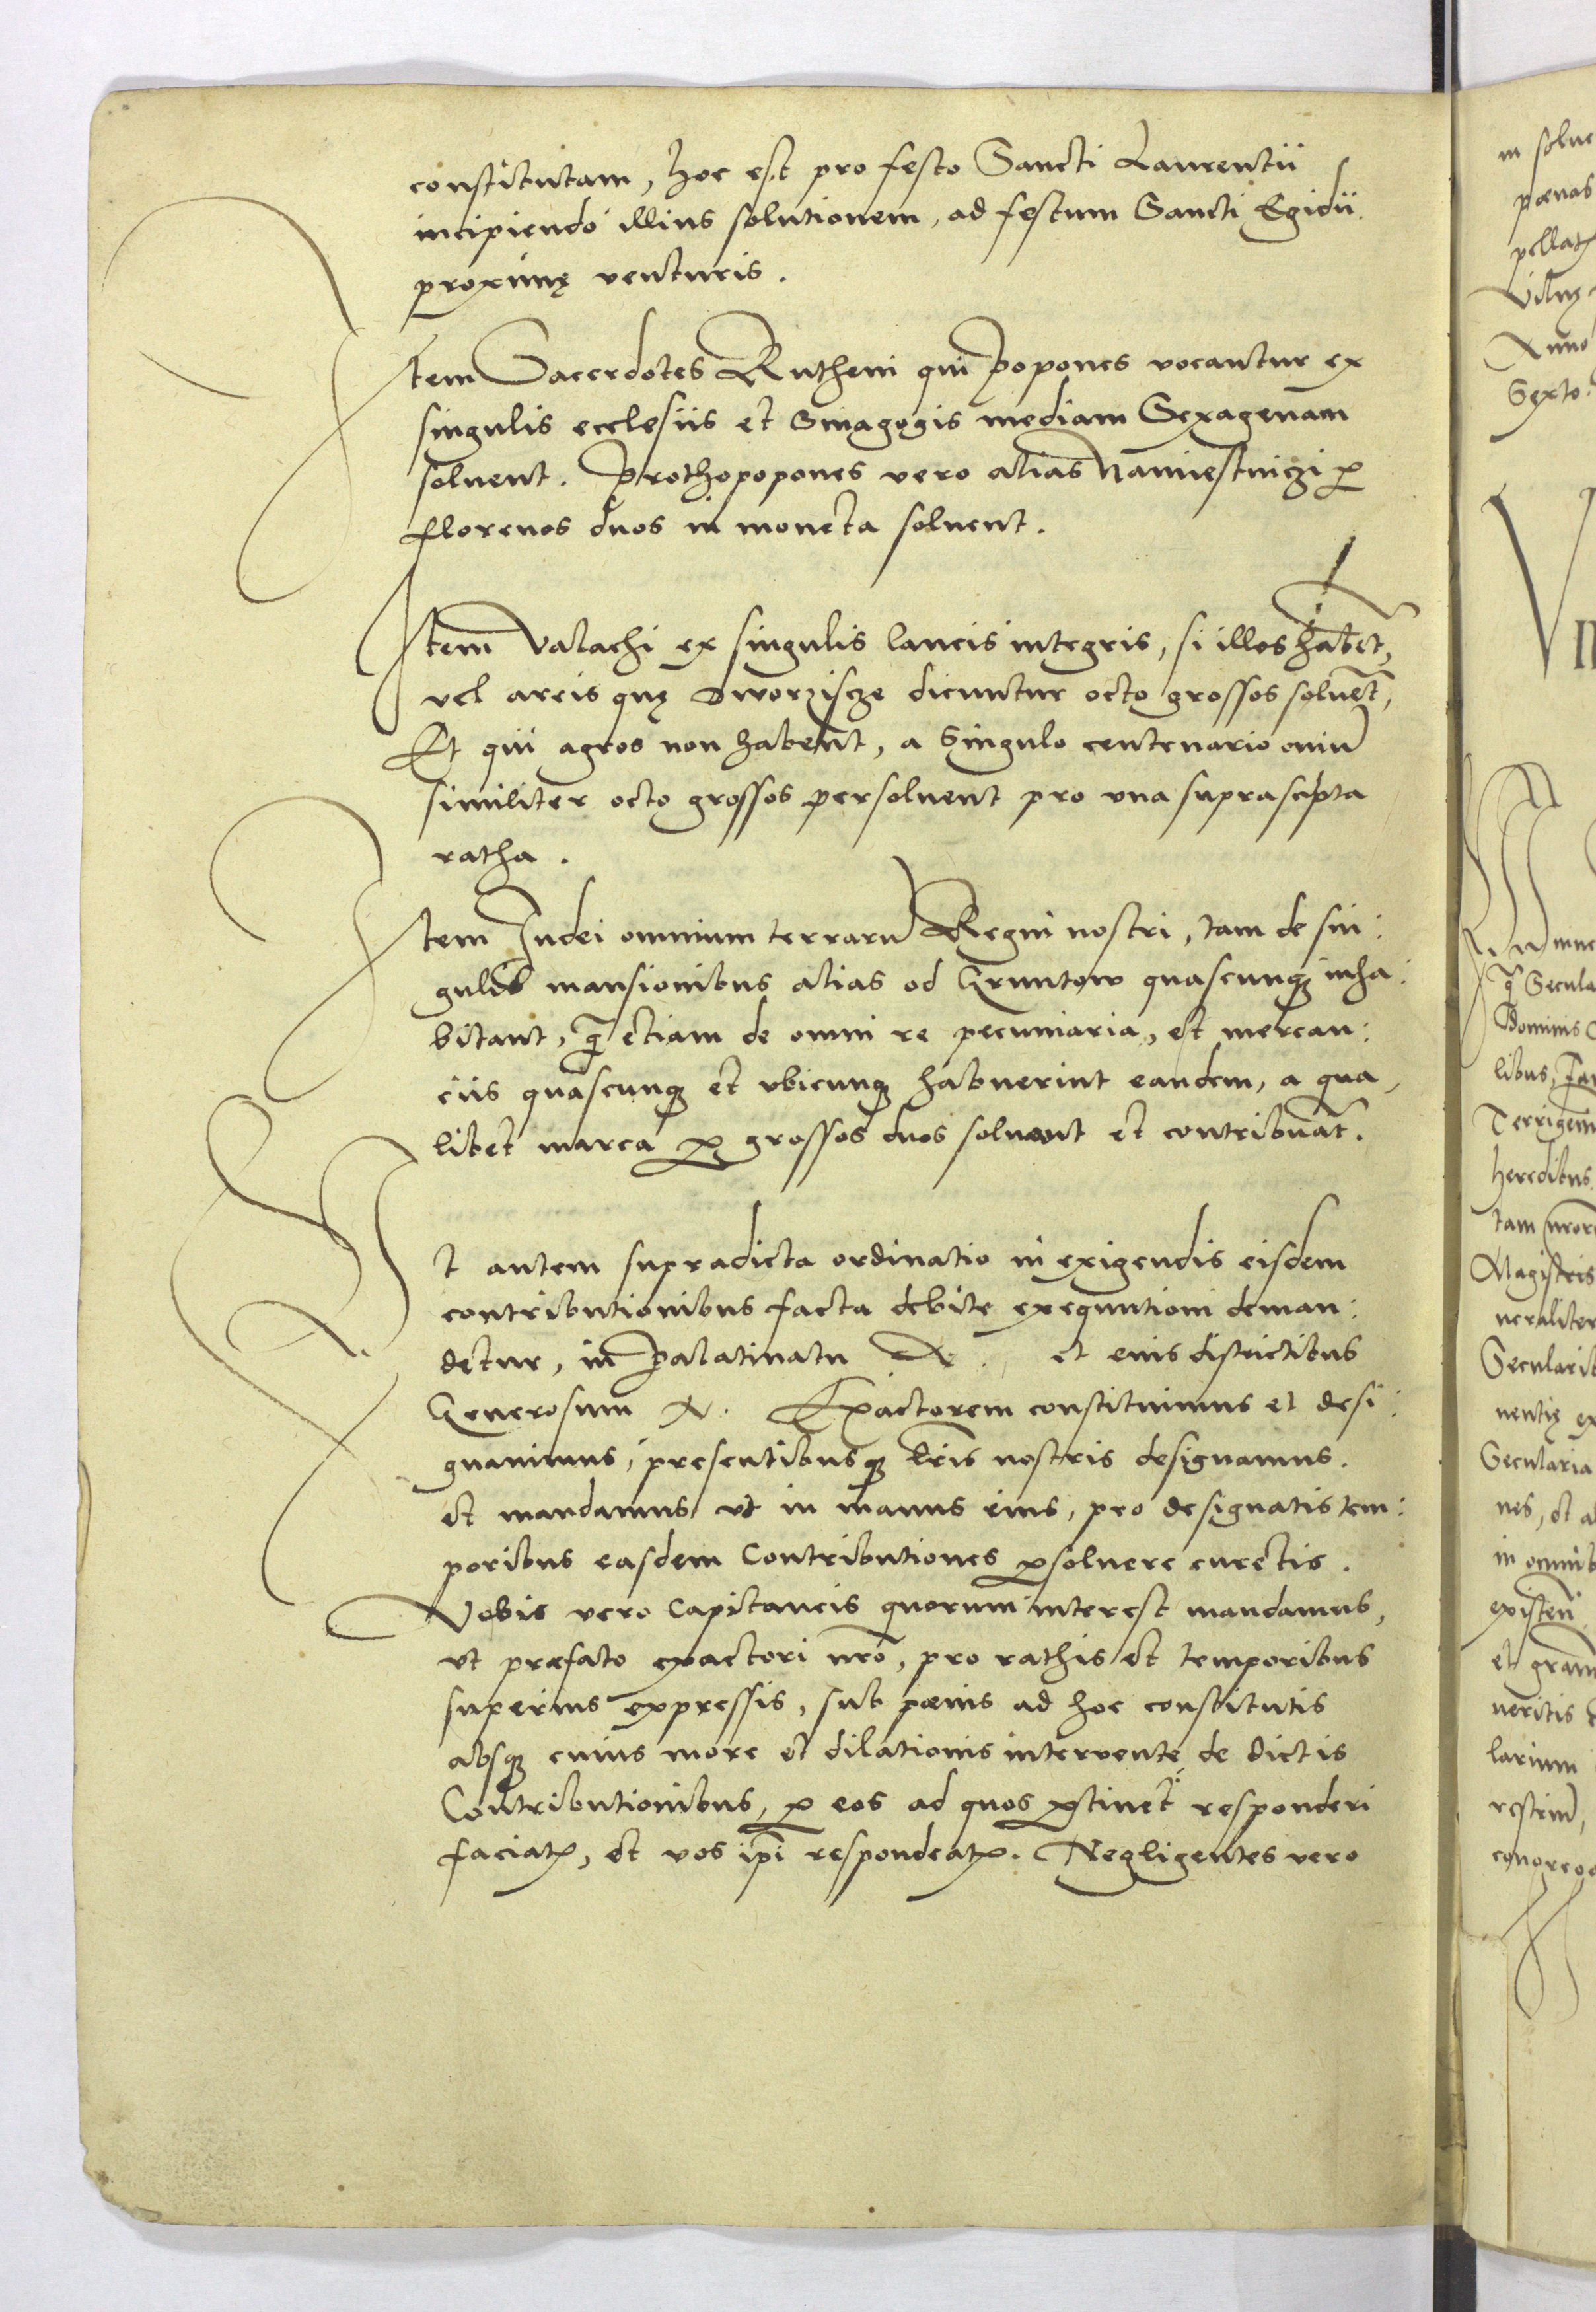 constitutam, hoc est pro festo Sancti Laurentii
incipiendo illius solutionem, ad festum Sancti Egidii
proximę venturis.
Item Sacerdotes Rutheni qui Popones vocantur ex
singulis ecclesiis et Sinagogis mediam Sexagenam
soluent. Prothopopones vero alias Namiestniczi p
florenos duos in moneta soluent.
Item Valachi ex singulis laneis integris, si illos habēt,
vel areis quę Dworziscze dicuntur octo grossos soluēt,
Et qui agros non habent, a Singulo centenario oviū
similiter octo grossos persoluent pro vna suprascripta
ratha.
Item Iudei omnium terrarū Regni nostri, tam de sin:
gulis mansionibus alias od Gruntow quascunq inha:
bitant, q̄ etiam de omni re pecuniaria, et mercan:
ciis quascunq et vbicunq habuerint eandem, a qua,
libet marca p grossos duos soluent et contribuāt.
Ut autem supradicta ordinatio in exigendis eisdem
contributionibus facta debite exequutioni deman:
detur, in Palatinatu N. et eius districtibus
Generosum N. Exactorem constituimus et desi:
gnauimus, presentibusq lr̄is nostris designamus.
et mandamus vt in manus eius, pro designatis tem:
poribus easdem Contributiones psoluere curetis.
Vobis vero Capitaneis quorum interest mandamus,
vt præfato exactori nr̄o, pro rathis et temporibus
superius expressis, sub pœnis ad hoc constitutis
absq cuius more et dilationis intervente de dictis
Contributionibus, p eos ad quos ptinet responderi
faciatis, et vos ipi respondeatis. Negligentes vero